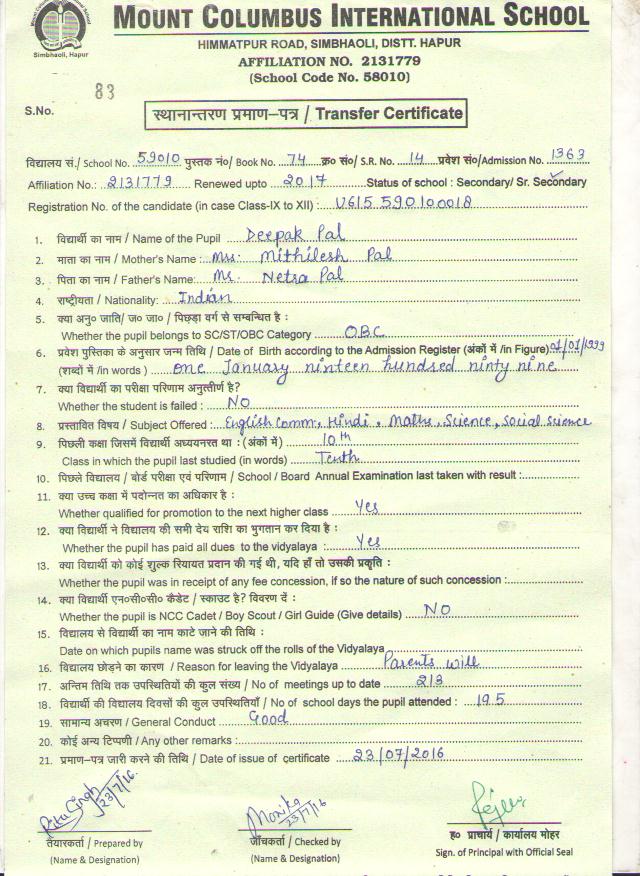 MOUNT COLUMBUS INTERNATIONAL SCHOOL
Simbhaoli, Hapur
HIMMATPUR ROAD, SIMBHAOLI, DISTT. HAPUR
AFFILIATION NO. 2131779
(School Code No. 58010)
83
S.No.
स्थानान्तरण प्रमाण–पत्र / Transfer Certificate
विद्यालय सं./ School No. 59010 पुस्तक नं०/ Book No. 74 क्र० सं०/ S.R. No. 14 प्रवेश सं०/Admission No. 1363
Affiliation No.: 2131779 Renewed upto 2017 Status of school : Secondary/ Sr. Secondary
Registration No. of the candidate (in case Class-IX to XII) : U615 590100018
1. विद्यार्थी का नाम / Name of the Pupil Deepak Pal
2. माता का नाम / Mother's Name : Mrs. Mithilesh Pal
3. पिता का नाम / Father's Name: Mr. Netra Pal
4. राष्ट्रीयता / Nationality: Indian
5. क्या अनु० जाति/ ज० जा० / पिछड़ा वर्ग से सम्बन्धित है :
Whether the pupil belongs to SC/ST/OBC Category OBC
6. प्रवेश पुस्तिका के अनुसार जन्म तिथि / Date of Birth according to the Admission Register (अंकों में /in Figure) 01/01/1999
(शब्दों में /in words) one January ninteen hundred ninty nine
7. क्या विद्यार्थी का परीक्षा परिणाम अनुत्तीर्ण है?
Whether the student is failed : NO
8. प्रस्तावित विषय / Subject Offered : English Comm, Hindi, Maths, Science, Social science
9. पिछली कक्षा जिसमें विद्यार्थी अध्ययनरत था : (अंकों में) 10th
Class in which the pupil last studied (in words) Tenth
10. पिछले विद्यालय / बोर्ड परीक्षा एवं परिणाम / School / Board Annual Examination last taken with result :
11. क्या उच्च कक्षा में पदोन्नत का अधिकार है :
Whether qualified for promotion to the next higher class Yes
12. क्या विद्यार्थी ने विद्यालय की सभी देय राशि का भुगतान कर दिया है :
Whether the pupil has paid all dues to the vidyalaya : Yes
13. क्या विद्यार्थी को कोई शुल्क रियायत प्रदान की गई थी, यदि हाँ तो उसकी प्रकृति :
Whether the pupil was in receipt of any fee concession, if so the nature of such concession :
14. क्या विद्यार्थी एन०सी०सी० कैडेट / स्काउट है? विवरण दें :
Whether the pupil is NCC Cadet / Boy Scout / Girl Guide (Give details) NO
15. विद्यालय से विद्यार्थी का नाम काटे जाने की तिथि :
Date on which pupils name was struck off the rolls of the Vidyalaya
16. विद्यालय छोड़ने का कारण / Reason for leaving the Vidyalaya Parents will
17. अन्तिम तिथि तक उपस्थितियों की कुल संख्या / No of meetings up to date 213
18. विद्यार्थी की विद्यालय दिवसों की कुल उपस्थितियाँ / No of school days the pupil attended : 195
19. सामान्य अचरण / General Conduct Good
20. कोई अन्य टिप्पणी / Any other remarks :
21. प्रमाण-पत्र जारी करने की तिथि / Date of issue of certificate 23/07/2016
Ritu Singh 23/7/16 Monika 23/7/16
तैयारकर्ता / Prepared by जाँचकर्ता / Checked by ह० प्राचार्य / कार्यालय मोहर
(Name & Designation) (Name & Designation) Sign. of Principal with Official Seal